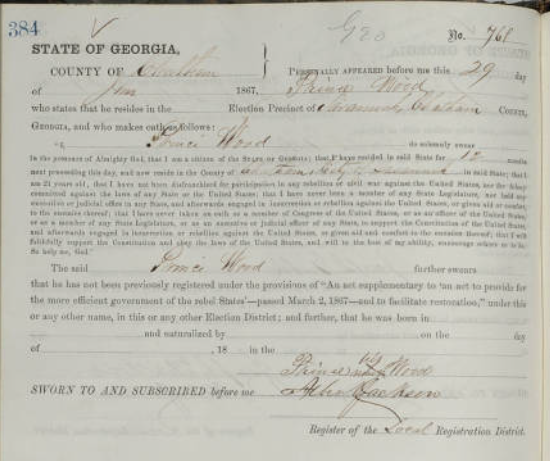 384 No. 768
STATE OF GEORGIA,
COUNTY OF Chatham } PERSONALLY APPEARED before me this 29 day
of 1867, Prince Wood
who states that he resides in the Election Precinct of Savannah, Chatham County,
GEORGIA, and who makes oath as follows:
"I, Prince Wood do solemnly swear
in the presence of Almighty God, that I am a citizen of the STATE OF GEORGIA; that I have resided in said State for 12 months
next preceding this day, and now reside in the County of Chatham Savannah in said State; that I
am 21 years old; that I have not been disfranchised for participation in any rebellion or civil war against the United States, nor for felony
committed against the laws of any State or the United States; that I have never been a member of any State Legislature, nor held any
executive or judicial office in any State, and afterwards engaged in insurrection or rebellion against the United States, or given aid or comfort
to the enemies thereof; that I have never taken an oath as a member of Congress of the United States, or as an officer of the United States,
or as a member of any State Legislature, or as an executive or judicial officer of any State, to support the Constitution of the United States,
and afterwards engaged in insurrection or rebellion against the United States, or given aid and comfort to the enemies thereof; that I will
faithfully support the Constitution and obey the laws of the United States, and will to the best of my ability, encourage others so to do.
So help me, God."
The said Prince Wood further swears
that he has not been previously registered under the provisions of "An act supplementary to 'an act to provide for
the more efficient government of the rebel States'—passed March 2, 1867—and to facilitate restoration," under this
or any other name, in this or any other Election District; and further, that he was born in
and naturalized by on the day
of , 18 in the
Prince Wood
SWORN TO AND SUBSCRIBED before me Jackson
Register of the Local Registration District.